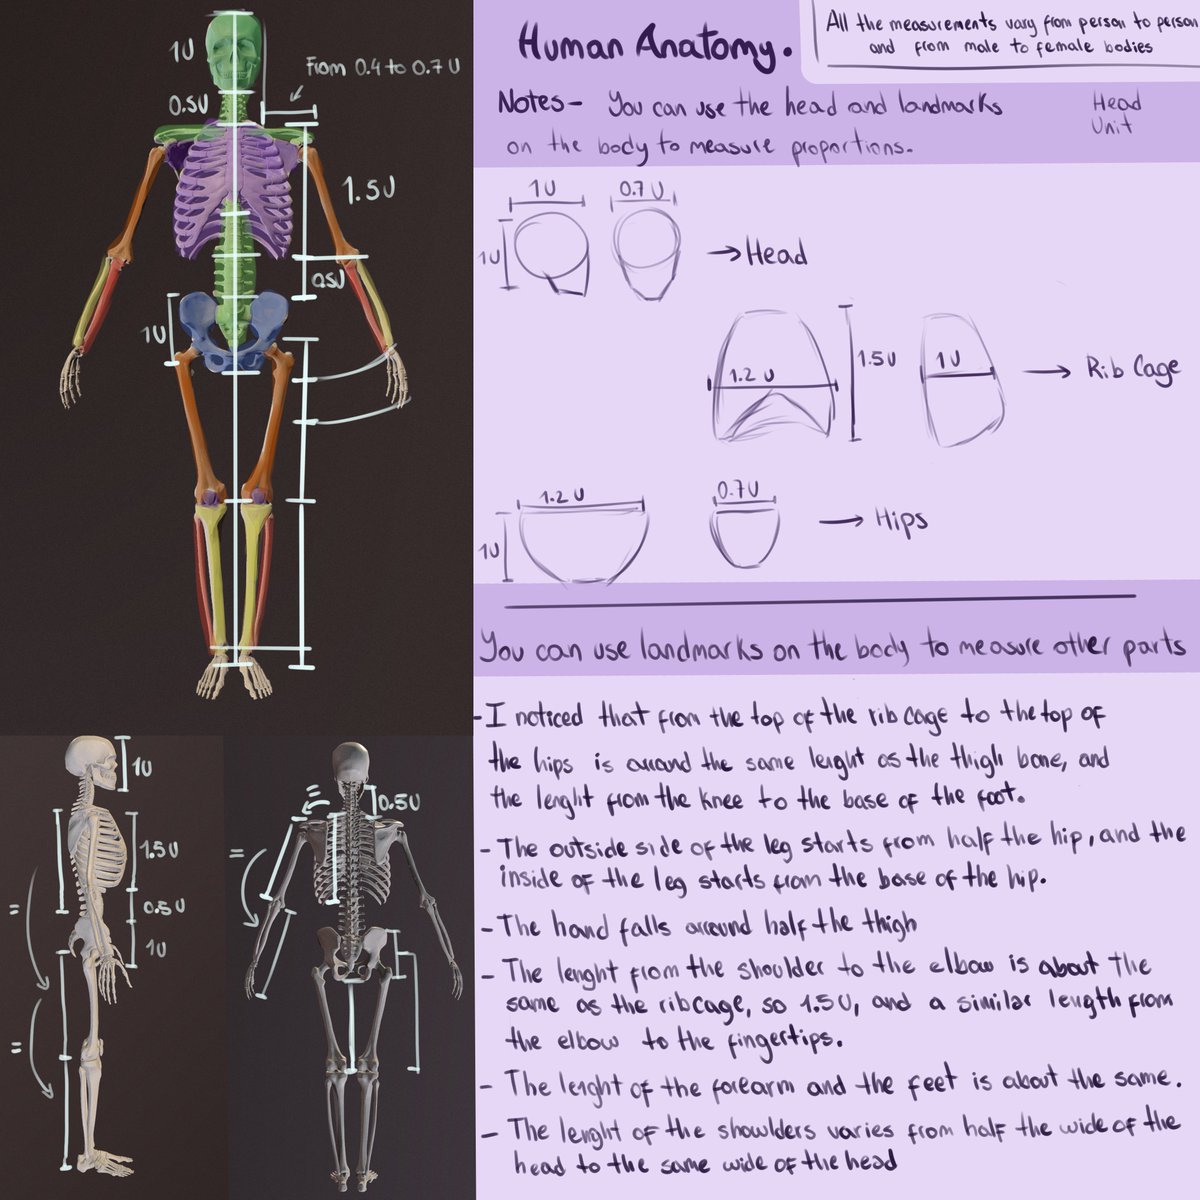 1U
0.5U
From 0.4 to 0.7 U
1.5U
0.5U
1U
Human Anatomy.
All the measurements vary from person to person
and from male to female bodies
Notes- You can use the head and landmarks
on the body to measure proportions.
Head
Unit
1U
0.7 U
1U
→ Head
1.2 U
1.5 U
1 U
→ Rib Cage
1.2 U
0.7U
1U
→ Hips
You can use landmarks on the body to measure other parts
- I noticed that from the top of the rib cage to the top of
the hips is around the same lenght as the thigh bone, and
the lenght from the knee to the base of the foot.
- The outside side of the leg starts from half the hip, and the
inside of the leg starts from the base of the hip.
- The hand falls around half the thigh
- The lenght from the shoulder to the elbow is about the
same as the ribcage, so 1.5U, and a similar length from
the elbow to the fingertips.
- The lenght of the forearm and the feet is about the same.
- The lenght of the shoulders varies from half the wide of the
head to the same wide of the head
1U
1.5U
0.5 U
1U
=
=
=
0.5U
=